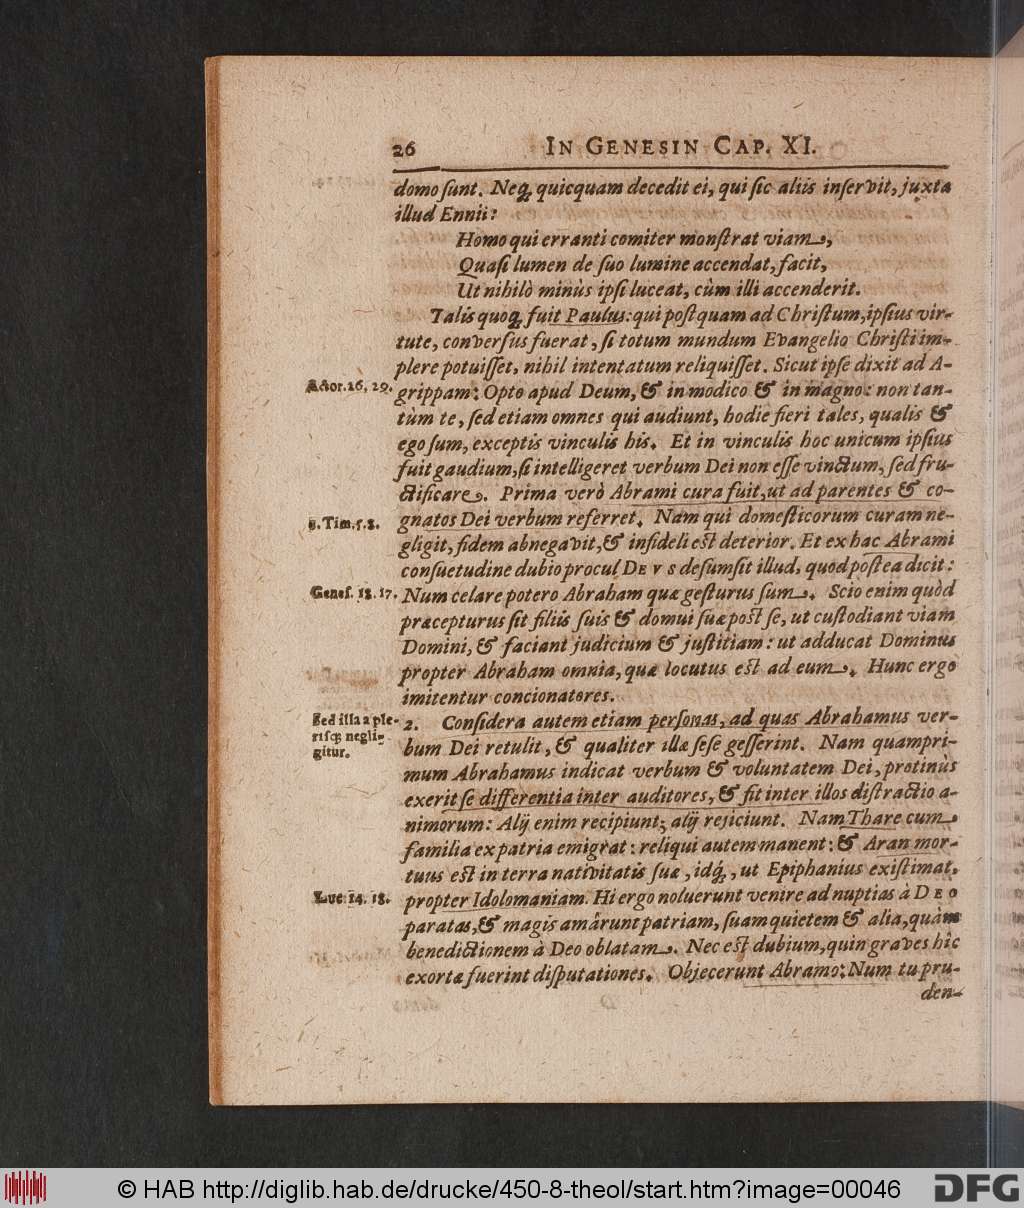 26 IN GENESIN CAP. XI.
domo sunt. Neq; quicquam decedit ei, qui sic aliis inservit, juxta
illud Ennii:
Homo qui erranti comiter monstrat viam,
Quasi lumen de suo lumine accendat, facit,
Ut nihilò minùs ipsi luceat, cùm illi accenderit.
Talis quoq; fuit Paulus: qui postquam ad Christum, ipsius vir-
tute, conversus fuerat, si totum mundum Evangelio Christi im-
plere potuisset, nihil intentatum reliquisset. Sicut ipse dixit ad A-
Actor. 26, 29.
grippam: Opto apud Deum, & in modico & in magno: non tan-
tùm te, sed etiam omnes qui audiunt, hodie fieri tales, qualis &
ego sum, exceptis vinculis his. Et in vinculis hoc unicum ipsius
fuit gaudium, si intelligeret verbum Dei non esse vinctum, sed fru-
ctificare. Prima verò Abrami cura fuit, ut ad parentes & co-
1. Tim. 5. 8.
gnatos Dei verbum referret. Nam qui domesticorum curam ne-
gligit, fidem abnegavit, & infideli est deterior. Et ex hac Abrami
consuetudine dubio procul DEVS desumsit illud, quod postea dicit:
Genes. 18. 17.
Num celare potero Abraham quæ gesturus sum. Scio enim quòd
præcepturus sit filiis suis & domui suæ post se, ut custodiant viam
Domini, & faciant judicium & justitiam: ut adducat Dominus
propter Abraham omnia, quæ locutus est ad eum. Hunc ergo
imitentur concionatores.
Sed illa a ple-
risq; negli-
gitur.
2. Considera autem etiam personas, ad quas Abrahamus ver-
bum Dei retulit, & qualiter illæ sese gesserint. Nam quampri-
mum Abrahamus indicat verbum & voluntatem Dei, protinùs
exerit se differentia inter auditores, & fit inter illos distractio a-
nimorum: Alij enim recipiunt; alij rejiciunt. Nam Thare cum
familia ex patria emigrat: reliqui autem manent: & Aran mor-
tuus est in terra nativitatis suæ, idq;, ut Epiphanius existimat,
Luc. 14. 18.
propter Idolomaniam. Hi ergo noluerunt venire ad nuptias à DEO
paratas, & magis amârunt patriam, suam quietem & alia, quàm
benedictionem à Deo oblatam. Nec est dubium, quin graves hîc
exortæ fuerint disputationes. Objecerunt Abramo: Num tu pru-
den-
© HAB http://diglib.hab.de/drucke/450-8-theol/start.htm?image=00046
DFG